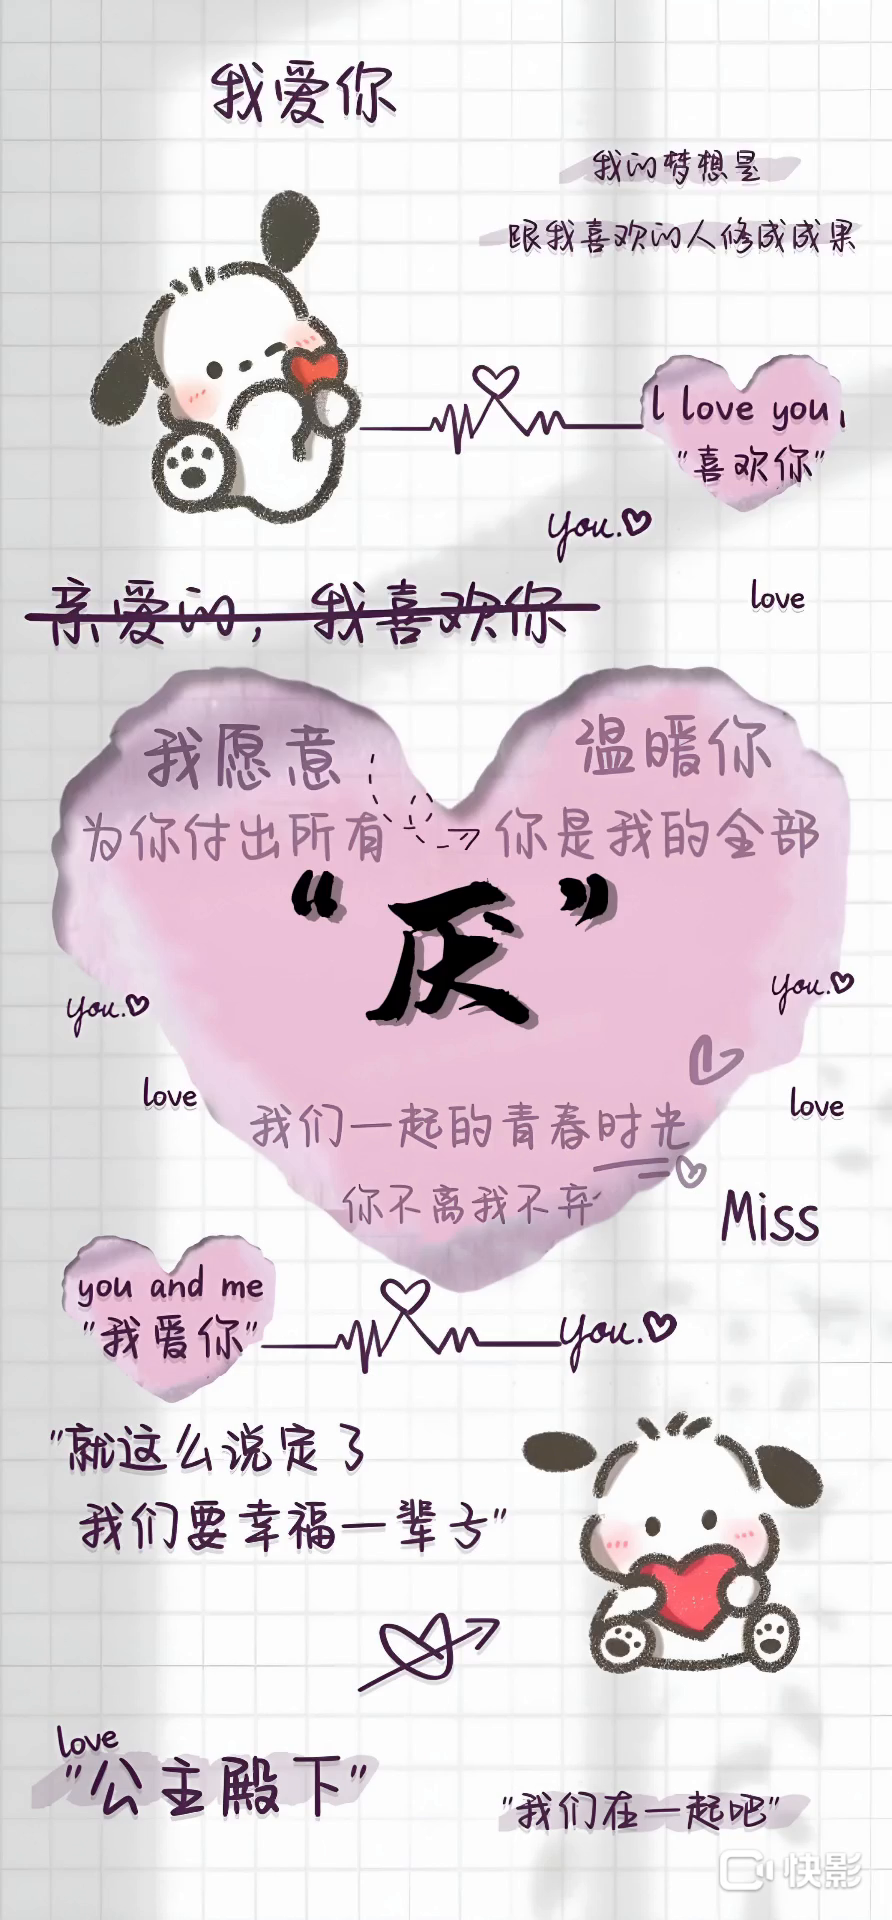 我爱你
我的梦想是
跟我喜欢的人修成成果
l love you,
"喜欢你"
you.
亲爱的，我喜欢你
love
我愿意
温暖你
为你付出所有
你是我的全部
“厌”
you.
you.
love
love
我们一起的青春时光
你不离我不弃
Miss
you and me
"我爱你"
you.
"就这么说定了
我们要幸福一辈子"
love
"公主殿下"
"我们在一起吧"
快影